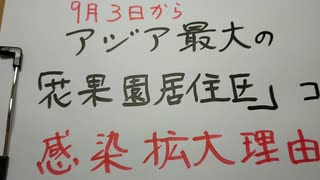 9月3日から
アジア最大の
「花果園居住区」コ
感染拡大理由